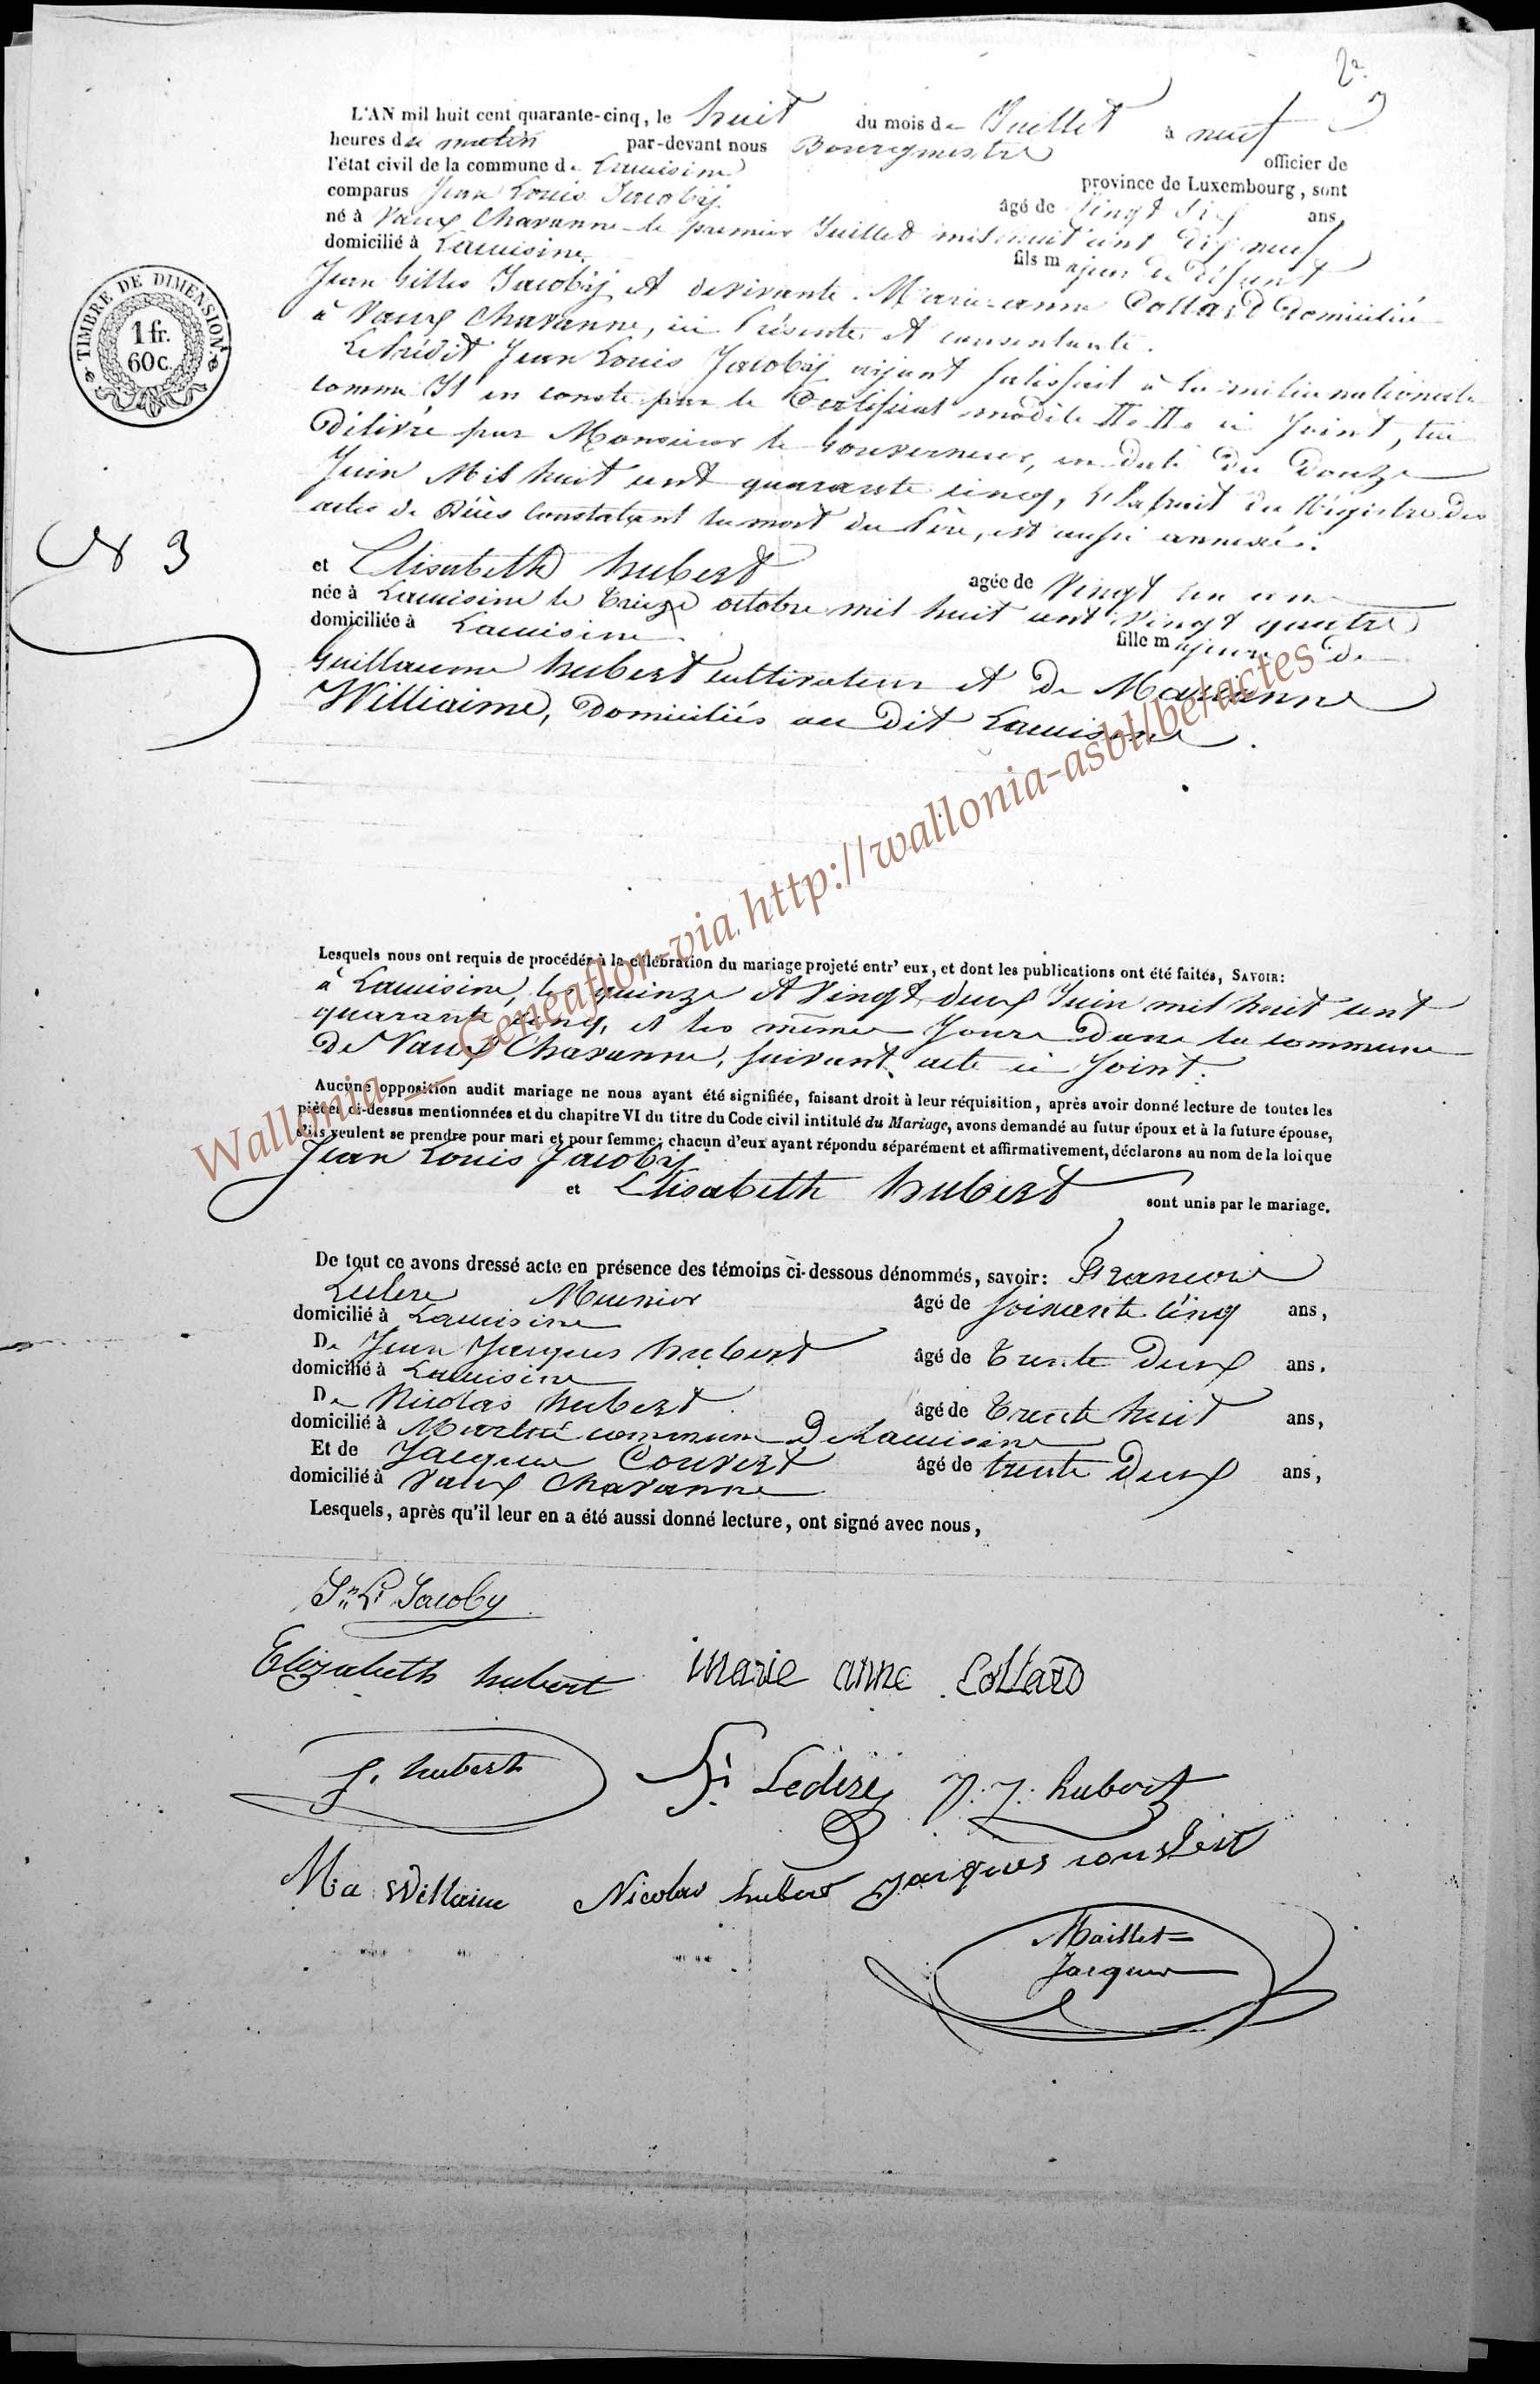 2e
L'AN mil huit cent quarante-cinq, le huit du mois de Juillet à neuf
heures du matin par-devant nous Bourgmestre officier de
l'état civil de la commune de province de Luxembourg, sont
comparus Jean Louis Jacoby âgé de Vingt Six ans,
né à Vaux Chavanne le premier Juillet mil huit cent dix neuf
domicilié à fils majeur de défunt
Jean Gilles Jacoby et de vivante Marie-anne Collard domiciliée
à Vaux Chavanne, ici Présente et consentante.
Jean Louis Jacoby ayant satisfait à la milice nationale
comme Il en conste par le Certificat modèle ci Joint, lui
Délivré par Monsieur le Gouverneur, en date du Douze
Juin Mil huit cent quarante cinq, L'Extrait du Régistre des
actes de Décès Constatant la mort du Père, est aussi annexé.
N 3
et Elisabeth hubert agée de Vingt un ans
née à le treize octobre mil huit cent Vingt quatre
domiciliée à fille majeure de
Guillaume hubert cultivateur et de Marianne
Williaime, Domiciliés au dit
Lesquels nous ont requis de procéder à la célébration du mariage projeté entr' eux, et dont les publications ont été faites, SAVOIR:
à les quinze et Vingt deux Juin mil huit cent
quarante cinq, et les mêmes Jours Dans la commune
De Vaux Chavanne, suivant acte ci Joint.
Aucune opposition audit mariage ne nous ayant été signifiée, faisant droit à leur réquisition, après avoir donné lecture de toutes les
pièces ci-dessus mentionnées et du chapitre VI du titre du Code civil intitulé du Mariage, avons demandé au futur époux et à la future épouse,
s'ils veulent se prendre pour mari et pour femme; chacun d'eux ayant répondu séparément et affirmativement, déclarons au nom de la loi que
Jean Louis Jacoby
et Elisabeth hubert sont unis par le mariage.
De tout ce avons dressé acte en présence des témoins ci-dessous dénommés, savoir: François
Leclere Meunier âgé de soixante cinq ans,
domicilié à
De Jean Jacques hubert âgé de Trente Deux ans,
domicilié à
De Nicolas hubert âgé de Trente huit ans,
domicilié à commune De
Et de Jacques Couvert âgé de trente Deux ans,
domicilié à Vaux Chavanne
Lesquels, après qu'il leur en a été aussi donné lecture, ont signé avec nous,
Jn Ls Jacoby
Elizabeth hubert marie anne collard
g. hubert Fs Leclere J. J. hubert
Ma Willaime Nicolas hubert Jacques
Maillet
Jacques
TIMBRE DE DIMENSION
1 fr.
60 c.
Wallonia _ Geneaflor-via http://wallonia-asbl/be/actes